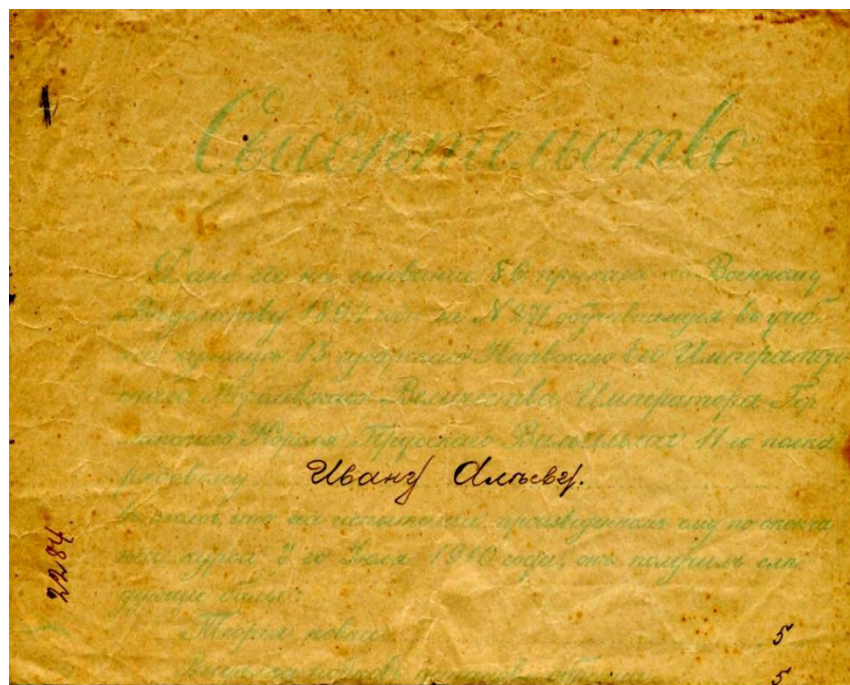 Свидѣтельство
Дано сіе на основаніи § 6 приказа по Военному
Вѣдомству 1894 года за № 271 обучавшемуся въ учеб
ной кузницѣ 13 гусарскаго Нарвскаго Его Императорс
Королевскаго Величества Императора Гер
манскаго Короля Прусскаго Вильгельма II го полка
рядовому Ивану Алѣеву.
въ томъ, что на испытаніи произведенномъ ему по оконча
ніи курса 2 го Іюля 1910 года, онъ получилъ слѣ
дующіе балы:
Теорія ковки 5
5
2284.